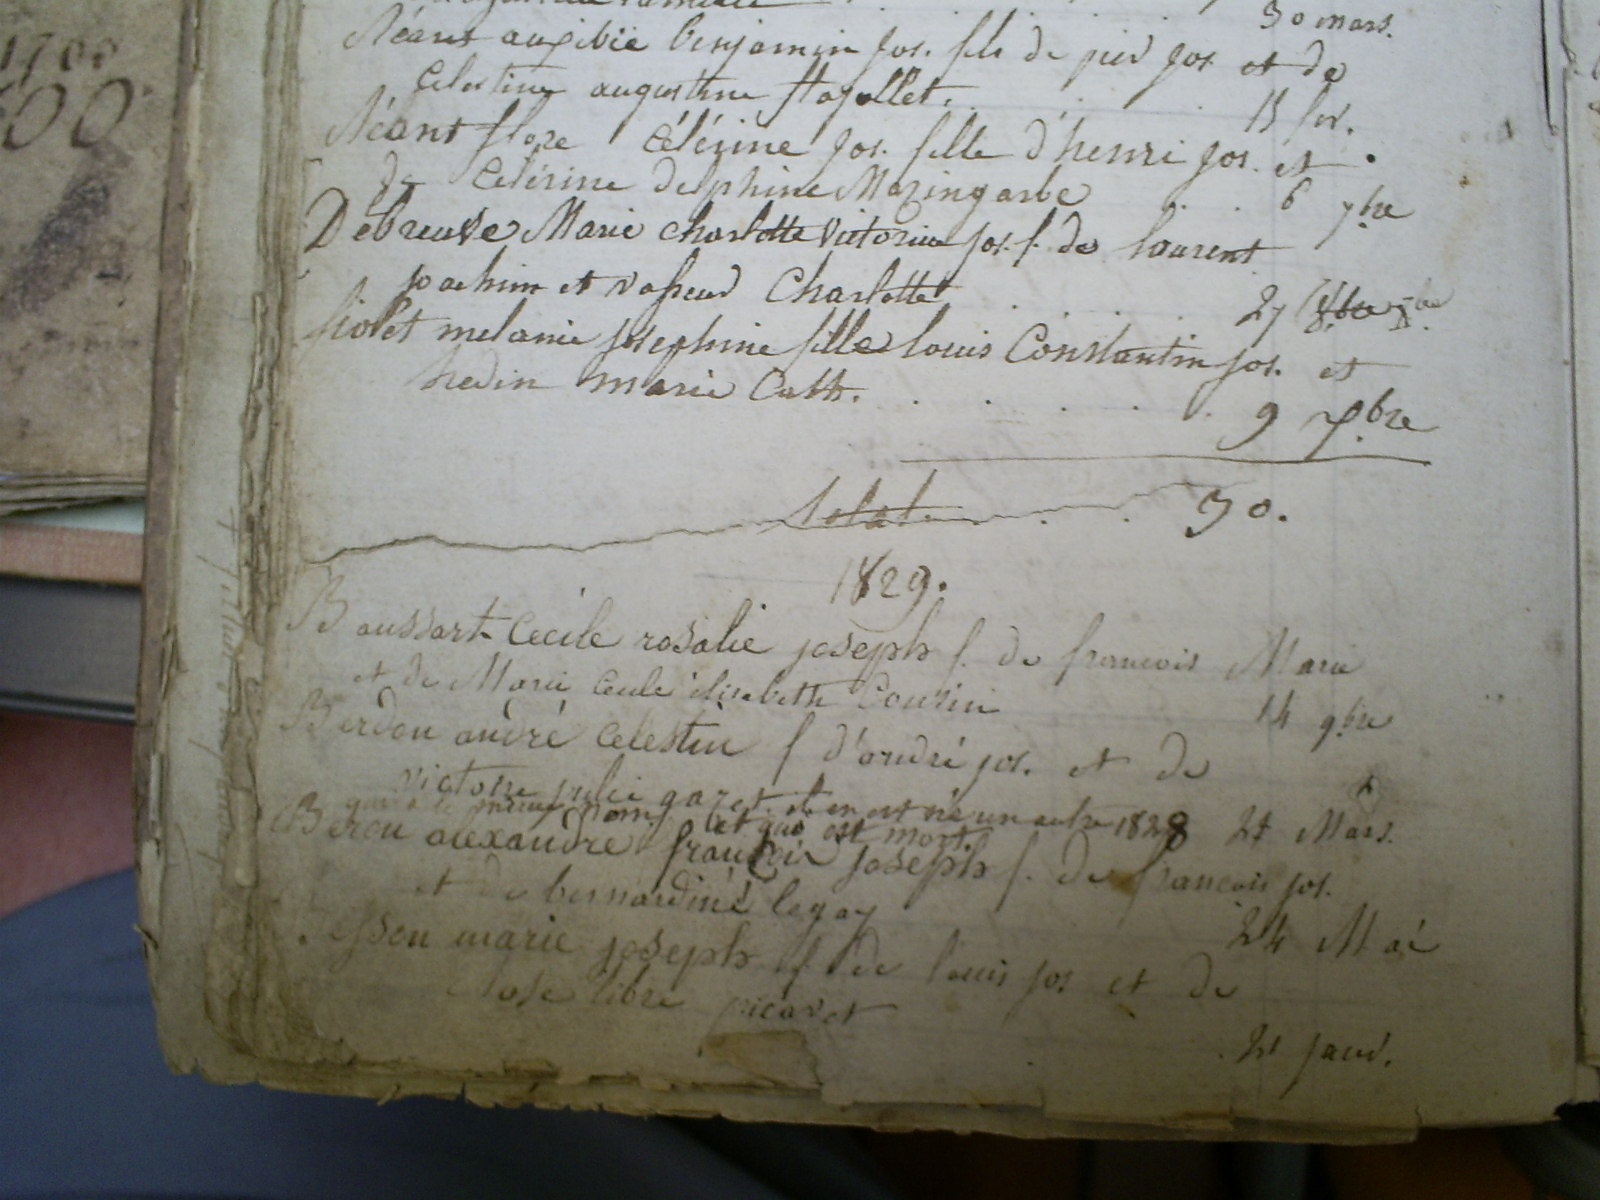 30 mars.
Néant auxibie benjamin jos. fils de pier jos et de
Celestine augustine flajollet. 15 fev.
Néant flore Célérine jos. fille d'henri jos. et
de Celérine delphine Mazingarbe 6 7bre
Debreuve Marie Charlotte victorine jos. f. de laurent
joachim et vasseur Charlotte 27
fiolet melanie josephine fille louis Constantin jos. et
hedin marie Cath. 9 7bre
total. 30.
1829.
Boussart Cecile rosalie joseph f. de francois Marie
et de Marie Cecile élisabeth Cousin 14 9bre
Berdou andré celestin f d'andré jos. et de
victoire julie gazet. il en est né un autre 1828 Mars.
même nom et qui est mort.
Berou alexandre françois joseph f. de francois jos.
et de bernardine legay 24 Mai
marie joseph f de louis jos et de
rose libre picavet 21 janv.
1700